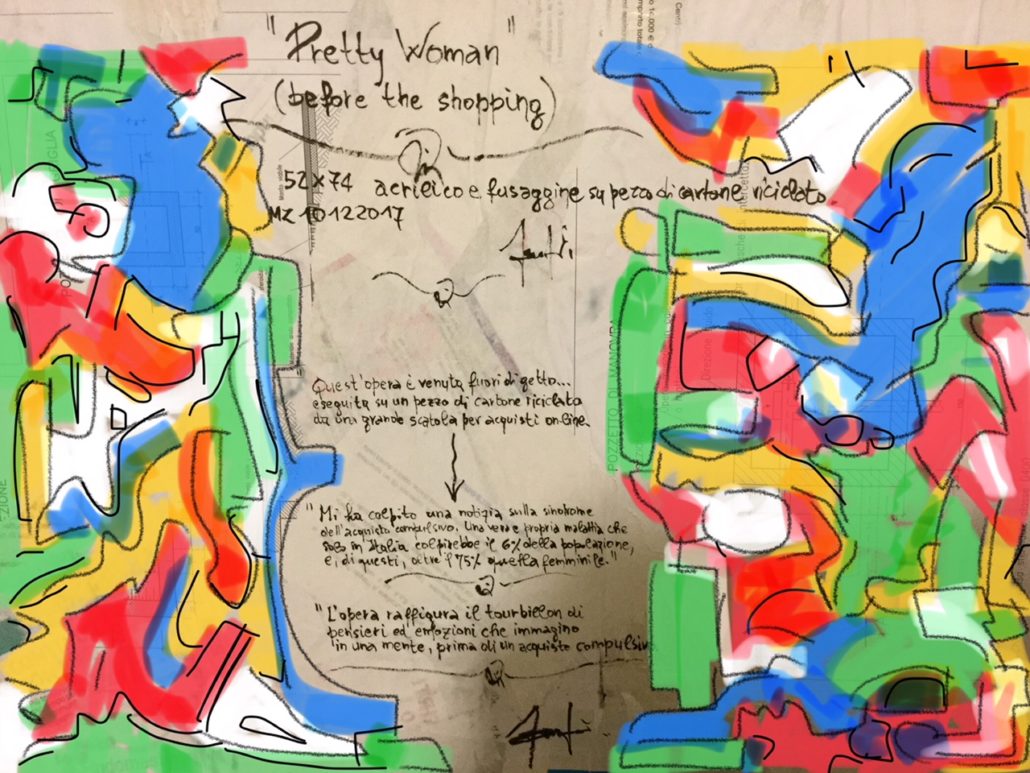 "Pretty Woman"
(before the shopping)
52x74 acrilico e fusaggine su pezzo di cartone riciclato
MZ 10122017
Quest'opera è venuta fuori di getto...
eseguita su un pezzo di cartone riciclato
da una grande scatola per acquisti on-line.
"Mi ha colpito una notizia sulla sindrome
dell'acquisto compulsivo. Una vera e propria malattia che
solo in Italia colpirebbe il 6% della popolazione,
e, di questi, oltre il 75% quella femminile."
"L'opera raffigura il tourbillon di
pensieri ed emozioni che immagino
in una mente, prima di un acquisto compulsiv
POZZETTO DI MANOVRA